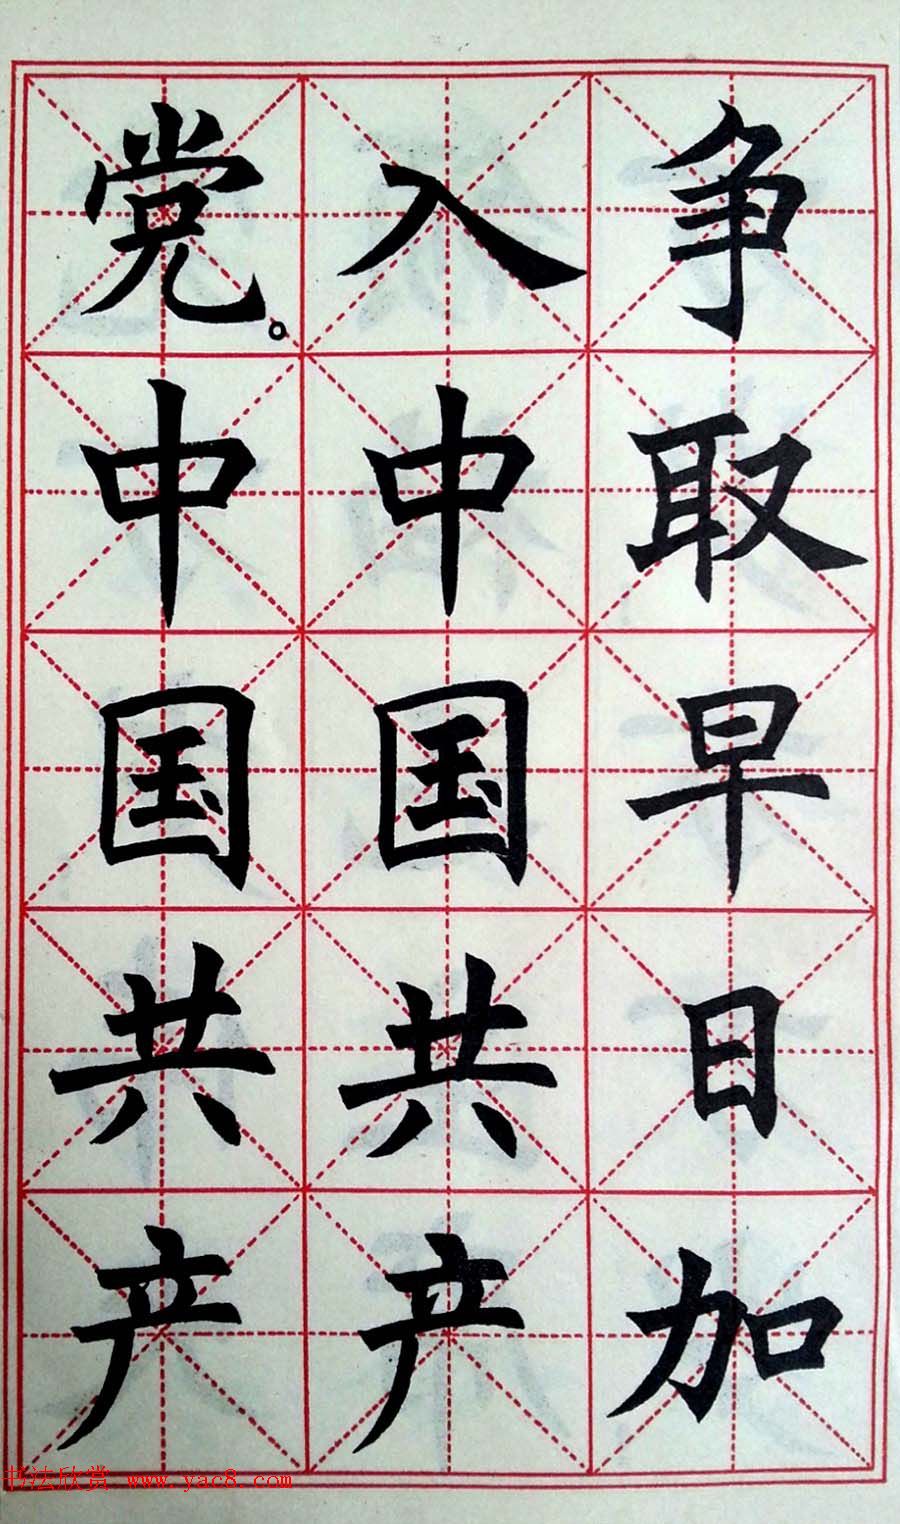 争取早日加
入中国共产
党。中国共产
书法欣赏 www.yac8.com